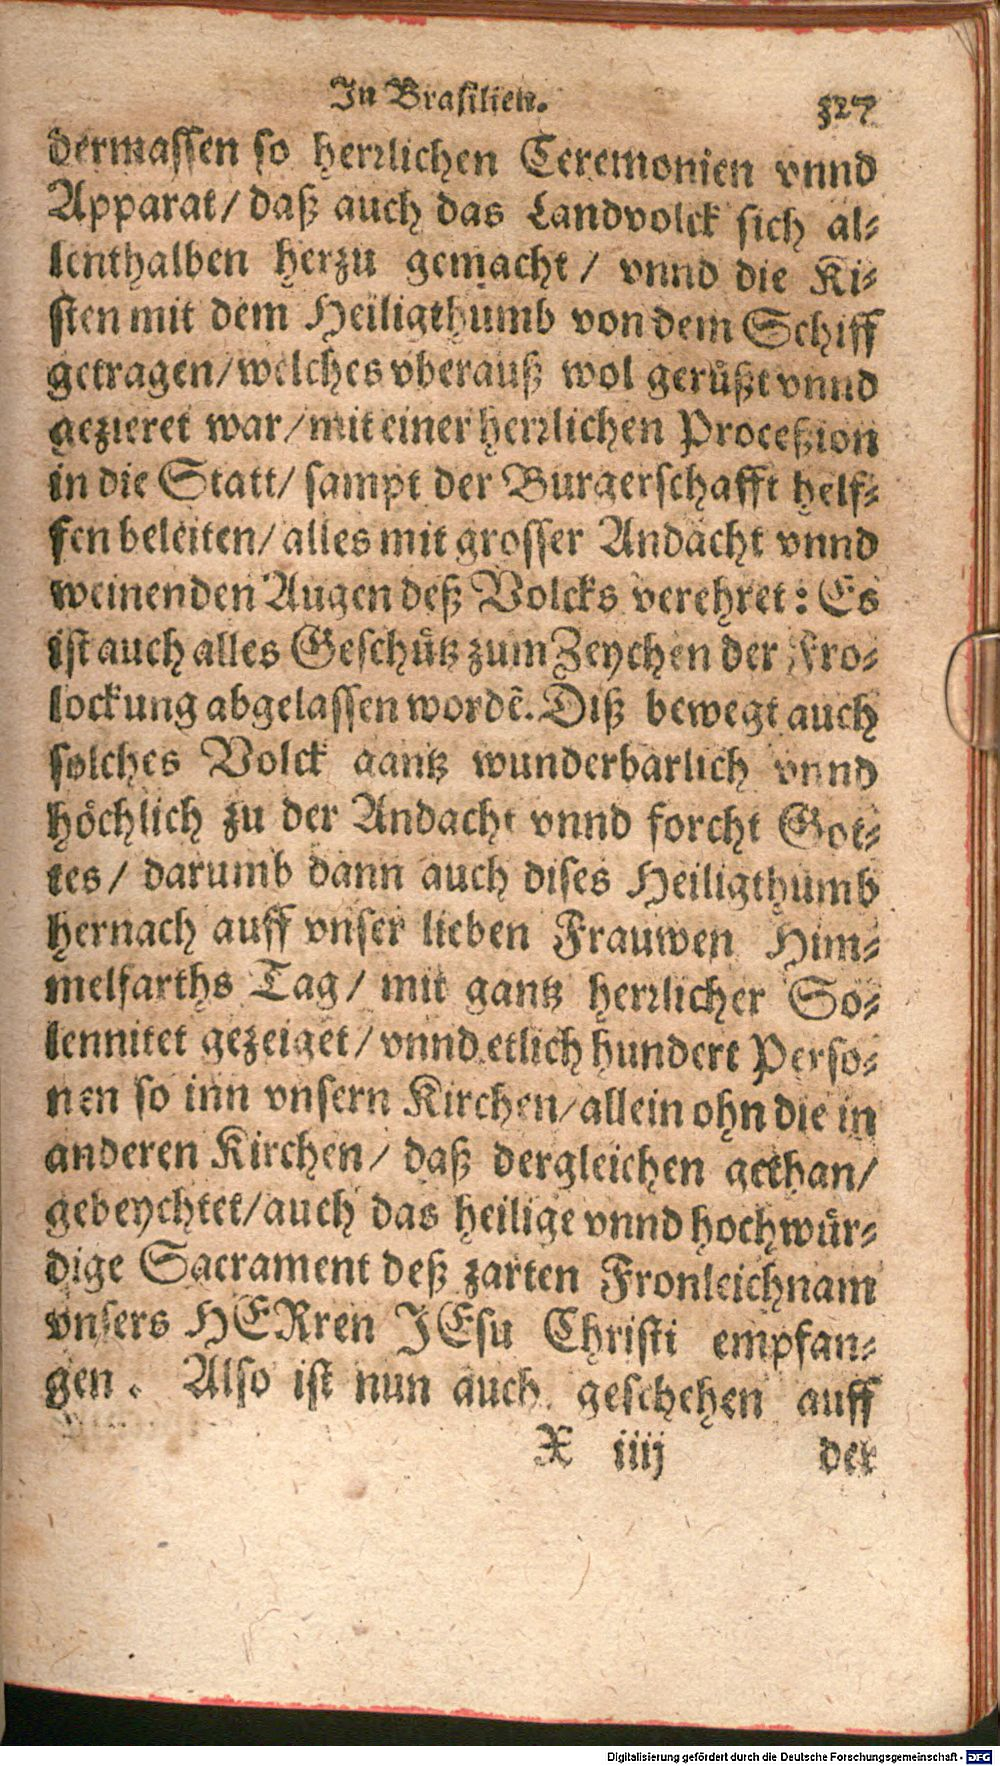 In Brasilien. 327
dermassen so herꝛlichen Ceremonien vnnd
Apparat/ daß auch das Landvolck sich al⸗
lenthalben herzu gemacht/ vnnd die Ki⸗
sten mit dem Heiligthumb von dem Schiff
getragen/welches vberauß wol gerůßt vnnd
gezieret war/mit einer herꝛlichen Proceßion
in die Statt/ sampt der Burgerschafft helf⸗
fen beleiten/alles mit grosser Andacht vnnd
weinenden Augen deß Volcks verehret: Es
ist auch alles Geschůtz zum Zeychen der Fro⸗
lockung abgelassen wordẽ. Diß bewegt auch
solches Volck gantz wunderbarlich vnnd
hoͤchlich zu der Andacht vnnd forcht Got⸗
tes/ darumb dann auch dises Heiligthumb
hernach auff vnser lieben Frauwen Him⸗
melfarths Tag/ mit gantz herꝛlicher So⸗
lennitet gezeiget/ vnnd etlich hundert Perso⸗
nen so inn vnsern Kirchen/allein ohn die in
anderen Kirchen/ daß dergleichen gethan/
gebeychtet/auch das heilige vnnd hochwůr⸗
dige Sacrament deß zarten Fronleichnam
vnsers HERren JEsu Christi empfan⸗
gen. Also ist nun auch geschehen auff
X iiij der
Digitalisierung gefördert durch die Deutsche Forschungsgemeinschaft - DFG